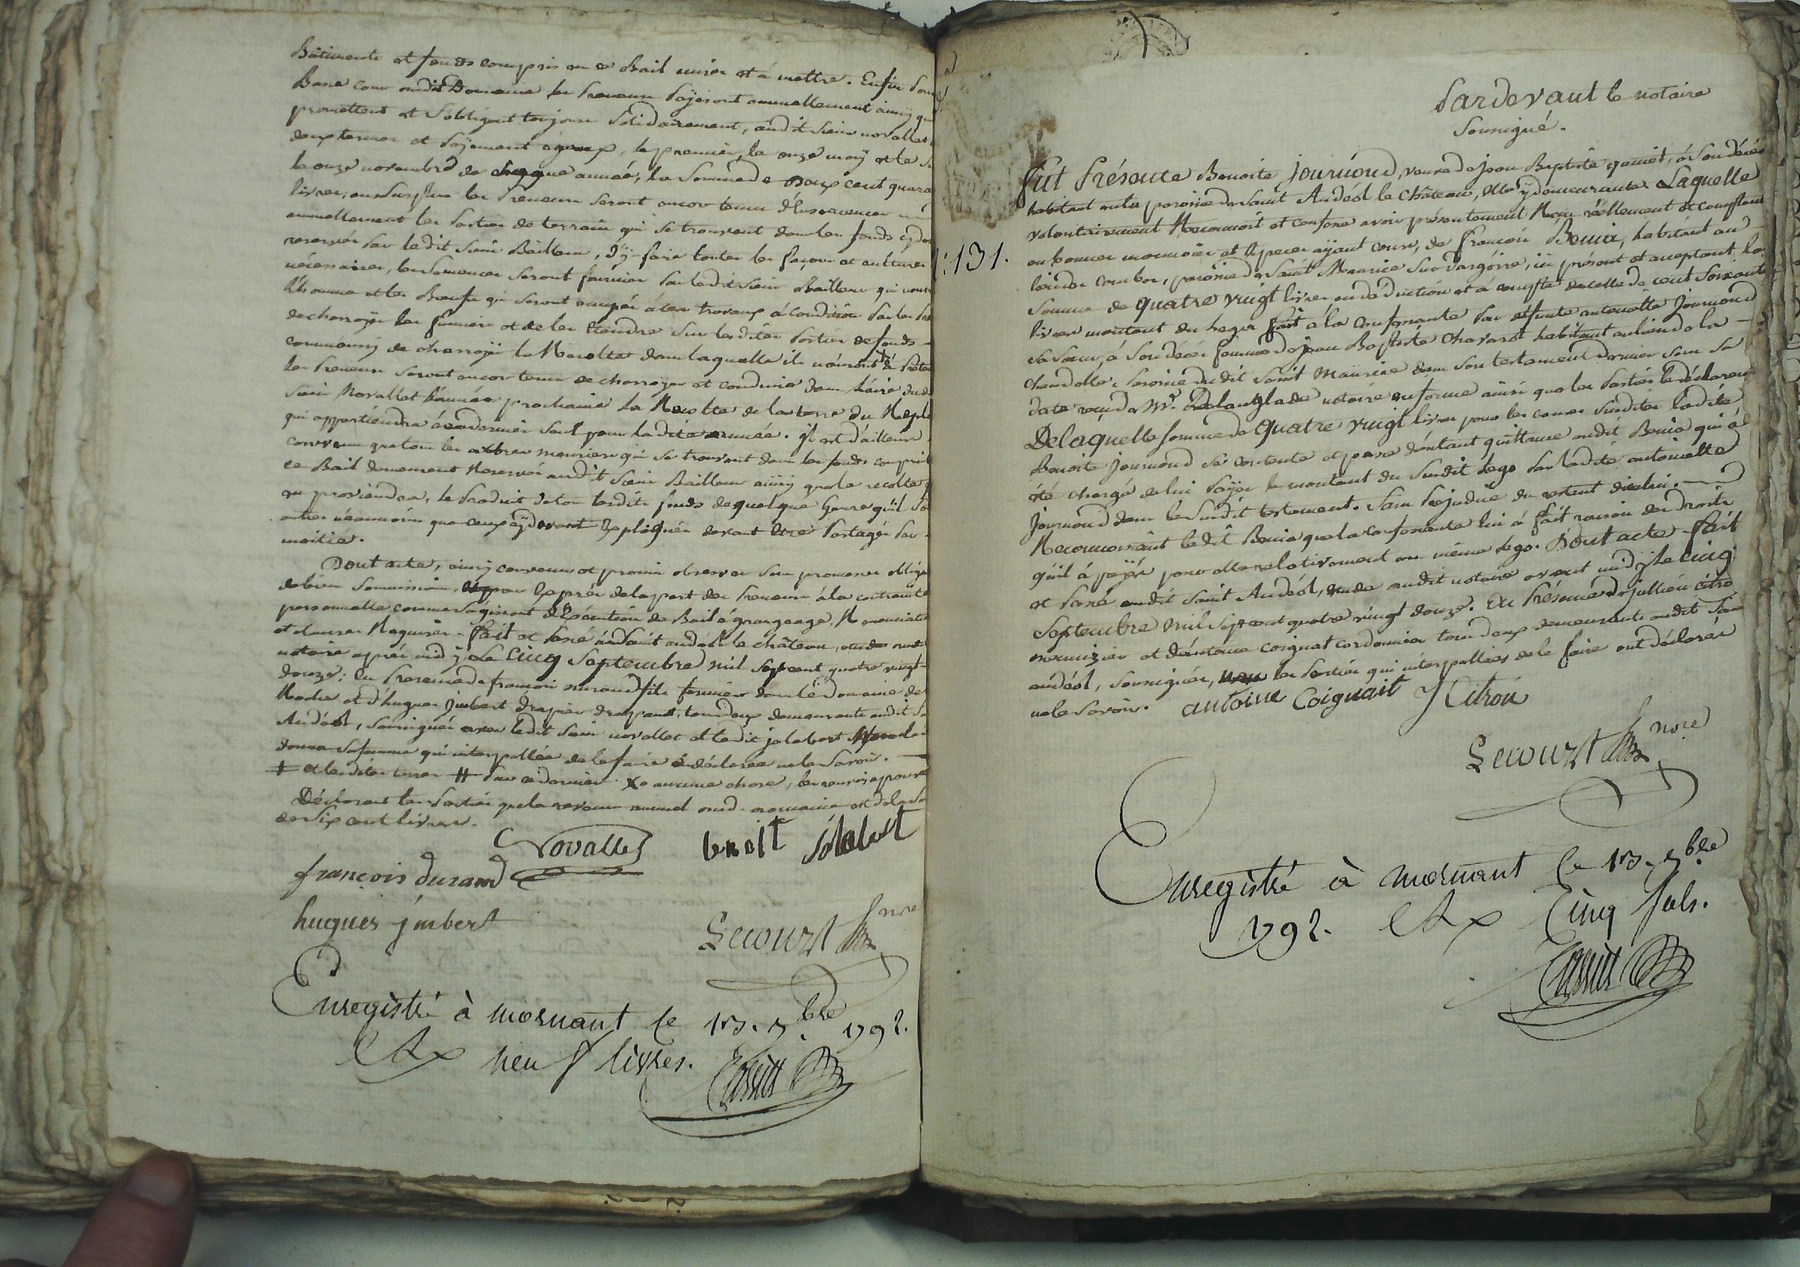 Bâtiments et fonds compris en ce Bail unir et à mettre. Enfin
Base cour dudit Domaine les Preneurs payeront annuellement ainsy qu
promettent et s'obligent toujours solidairement, audit sieur novallet
deux termes et payement égaux, le premier le onze may et le
le onze novembre de chaque année, la somme de Deux cent quara
livres, en surplus les Preneurs seront encor tenus d'ensemencer
annuellement les parties de terrain qui se trouvent dans les fonds cy
reservés par ledit sieur Bailleur, d'y faire toutes les façons et cultures
nécessaires, les semences seront fournies par ledit sieur Bailleur qui
l'homme et les Bœufs qui seront occupés à ces travaux à condition par les
de charroyer les fumiers et de les étendre sur lesdites parties de fonds
de charroyer la Récolte dans laquelle ils n'auront
les Preneurs seront encor tenus de charroyer et conduire dans l'aire du
sieur Novallet l'année prochaine la Récolte de la terre du
qui appartiendra à ce dernier seul pour ladite année. il est d'ailleurs
convenu que tous les arbres meuriers qui se trouvent dans les fonds compris
ce Bail demeurent Reservés audit sieur Bailleur ainsy que la récolte
qui proviendra, le produit de tous lesdits fonds de quelque genre qu'il
autres néanmoins que ceux cy devant Expliqués devant être Partagés par
moitié.
Dont acte, ainsy convenu et promis observer sous promesses obliga
de biens soumissions, Expres de la part des Preneurs à la contrainte
personnelle comme s'agissant d'Exécution de Bail à grangeage, Renonciation
et clauses Requises. fait et passé audit saint andéol le château, étude
notaire après midy, Le Cinq Septembre mil sept cent quatre vingt
douze; En Presence de françois durand fils fermier dans le domaine de
Roche et d'hugues jmbert drapier drapant, tous deux demeurants audit
Andéol, soussignés avec ledit sieur novallet et ledit jalabert
sa femme qui interpellée de le faire a déclaré ne le savoir.
+ et lesdites terres # par ce dernier X aucune chose, les renvois approuvé
Déclarant les Parties que le revenu annuel dud. domaine est de la
de six cent livres.
Novallet benoit Jalabert
françois durand
hugues jmbert
Lecourt nore
Enregistré à mornant le 13. 7bre 1792.
neuf livres.
:131.
Pardevant le notaire
soussigné.
fut Présente Benoite journoud, veuve de jean Baptiste garnier, à son décés
habitant en la paroisse de Saint Andéol le Château, elle y demeurante. Laquelle
volontairement Reconnoit et confesse avoir présentement Reçu réellement et comptant
en bonnes monnoies et Especes ayant cours, de françois Bouia, habitant au
lieu de combes, paroisse de Saint Maurice sur dargoire, ici présent et acceptant, la
Somme de quatre vingt livres en déduction et à compte de celle de cent soixante
livres montant du legs fait à la confessante par defunte antoinette journoud
sa sœur, à son décès femme de jean Baptiste chavarot habitant au lieu de la
chaudolle, paroisse dudit Saint Maurice dans son testament dernier sous sa
date reçu de Mr. notaire en forme ainsi que les parties le déclarent
De laquelle somme de quatre vingt livres pour les causes susdites ladite
Benoite journoud se contente et passe d'autant quittance audit Bouia qui a
été chargé de lui payer le montant du susdit legs par ladite antoinette
journoud dans le susdit testament. Sans Préjudice du restant dicelui.
Reconnoissant ledit Bouia que la confessante lui a fait raison des droits
qu'il a payés pour elle relativement au même legs. Dont acte fait
et Passé audit Saint Andéol, étude dudit notaire avant midy Le cinq
Septembre mil sept cent quatre vingt douze. En Présence de julien citro
menuisier et d'antoine coignat cordonnier tous deux demeurants audit Saint
andéol, soussignés, les Parties qui interpellées de le faire ont déclaré
ne le savoir. antoine Coignait J Citron
Lecourt nore
Enregistré à mornant le 13. 7bre
1792. Cinq sols.